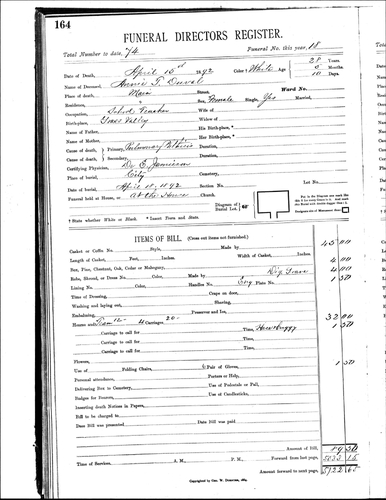 164
FUNERAL DIRECTORS REGISTER.
Total Number to date, 74 Funeral No. this year, 18
Date of Death, April 15th 1892 Color* White Age 28 Years. 5 Months. 10 Days.
Name of Deceased, Annie T. Duval
Place of death, Main Street, Ward No.
Residence, " Sex, Female Single, Yes Married,
Occupation, School Teacher Wife of
Birth-place, Grass Valley Widow of
Name of Father, His Birth-place, *
Name of Mother, Her Birth-place, *
Cause of death, Primary, Pulmonary Phthisis Duration,
Cause of death, Secondary, Duration,
Certifying Physician, Dr. E. Jamieson
Place of burial, City
Date of burial, April 18, 1892 Section No. Lot No.
Funeral held at House, or at the House Church, Diagram of Burial Lot.
† State whether White or Black. * Insert Town and State.
ITEMS OF BILL. (Cross out items not furnished.)
Casket or Coffin, No. Style, Made by 45 00
Length of Casket, Feet, Inches. Width of Casket, Inches.
Box, Pine, Chestnut, Oak, Cedar or Mahogany, 4 00
Robe, Shroud, or Dress No. Color, Made by Dig Grave 4 00
Lining No. Color, Handles No. Eng Plate No. 1 50
Time of Dressing, Crape on door,
Washing and laying out, Shaving,
Embalming, Preserver and Ice,
Hearse and Team 12- 4 Carriages 20- 32 00
Carriage to call for Time, Hire buggy 1 50
Carriage to call for Time,
Carriage to call for Time,
Flowers,
Use of Folding Chairs, 6 Pair of Gloves, 1 50
Personal attendance, Porters or Help,
Delivering Box to Cemetery, Use of Pedestals or Pall,
Badges for Bearers, Use of Candlesticks,
Inserting death Notices in Papers,
Bill to be charged to
Date Bill was presented Date Bill was paid
Amount of Bill, 89 50
Forward from last page, 5033 15
Time of Services, A. M., P. M. Amount forward to next page, 5122 65